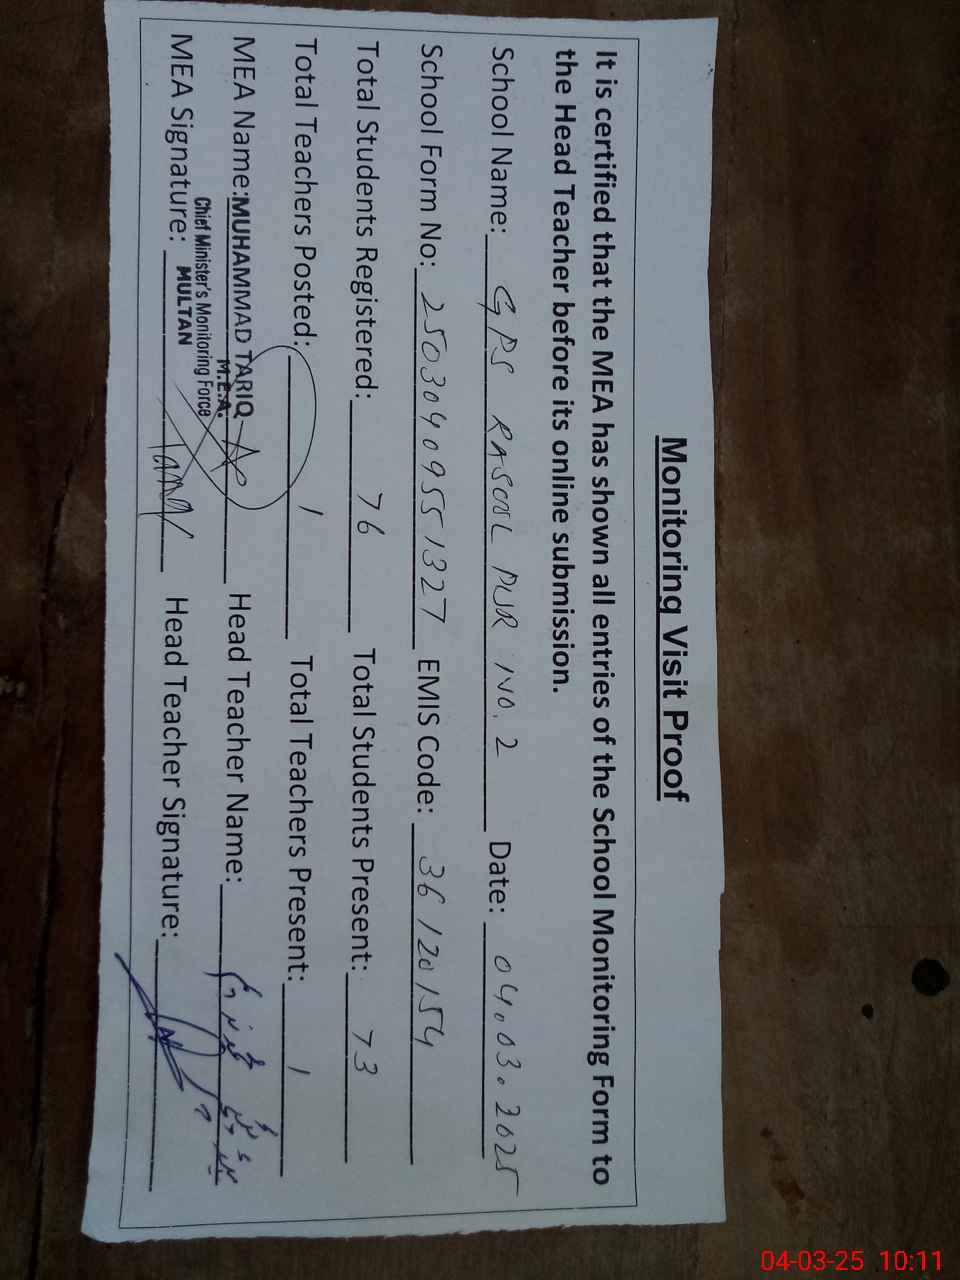 Monitoring Visit Proof
It is certified that the MEA has shown all entries of the School Monitoring Form to
the Head Teacher before its online submission.
School Name: GPS RASOOL PUR NO. 2 Date: 04.03.2025
School Form No: 25030409551327 EMIS Code: 36120154
Total Students Registered: 76 Total Students Present: 73
Total Teachers Posted: 1 Total Teachers Present: 1
MEA Name: MUHAMMAD TARIQ Head Teacher Name:
M.E.A.
Chief Minister's Monitoring Force
MEA Signature: MULTAN Head Teacher Signature:
04-03-25 10:11